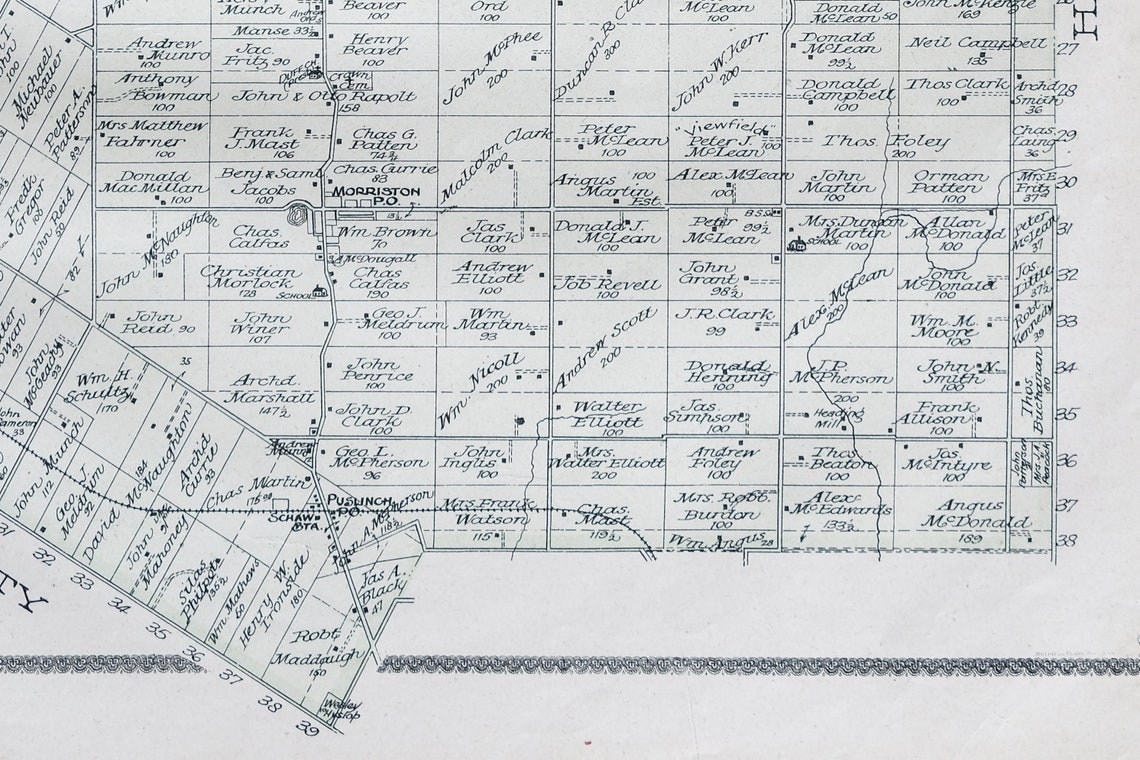 Munch
Manse 33½
Beaver
100
Ord
100
McLean
100
Donald
McLean 50
100
John McKenzie
169
Andrew
Munro
100
Jac.
Fritz 90
Henry
Beaver
100
John McPhee
200
Duncan B. Cla
200
John W. Kerr
200
Donald
McLean
99½
Neil Campbell
135
27
Michael
Neubauer
100
Anthony
Bowman
100
Crown
Cem.
John & Otto Rapolt
158
Donald
Campbell
100
Thos Clark
100
Archd
Smith
36
28
Peter A.
Patterson
89
Mrs Matthew
Fahrner
100
Frank
J. Mast
106
Chas G.
Patten
74¾
Malcolm Clark
200
Peter
McLean
100
"Viewfield"
Peter J.
McLean
100
Thos Foley
200
Chas.
Laing
36
29
Fredk
Gregor
100
Donald
MacMillan
100
Benj & Saml
Jacobs
100
Chas. Currie
83
MORRISTON
P.O.
Angus 100
Martin Est.
Alex. McLean
100
John
Martin
100
Orman
Patten
100
Mrs E
Fritz
37
30
John Reid
50
John McNaughton
180
Chas.
Calfas
Wm. Brown
70
Jas
Clark
100
Donald J.
McLean
100
Peter
McLean
99½
B.S.S.
SCHOOL
Mrs. Duncan
Martin
100
Allan
McDonald
100
Peter
McLean
37
31
McDougall
Christian
Morlock
128
SCHOOL
Chas
Calfas
190
Andrew
Elliott
100
Job Revell
100
John
Grant
98½
Alex. McLean
200
John
McDonald
100
Jos.
Little
37½
32
John
Reid 90
John
Winer
107
Geo J.
Meldrum
100
Wm
Martin
93
Andrew Scott
200
J.R. Clark
99
Wm. M.
Moore
100
Robt
Kennedy
39
33
John
McGeachy
93
Wm. H.
Schultz
170
35
Archd.
Marshall
147½
John
Penrice
100
Wm. Nicoll
200
Donald
Henning
100
J.P.
McPherson
200
John N.
Smith
100
Thos.
Buchanan
34
John
Cameron
33
John D.
Clark
100
Walter
Elliott
100
Jas.
Simpson
100
Heading
Mill
Frank
Allison
100
35
John Munch
112
Geo J.
Meldrum
David McNaughton
184
Archd
Currie
93
Andrew
Munro
Geo L.
McPherson
96
John
Inglis
100
Mrs.
Walter Elliott
100
Andrew
Foley
100
Thos
Beaton
100
Jos.
McIntyre
100
36
Chas Martin
PUSLINCH
P.O.
SCHAW
STA.
John A. McPherson
118½
Mrs. Frank
Watson
115
Chas.
Mast
119½
Mrs. Robt.
Burdon
100
Wm. Angus 28
Alex
McEdwards
133½
Angus
McDonald
189
37
38
John
Mahoney
Silas
Philps
135½
Wm. Mathews
60
Henry W.
Ironside
180
Jas A.
Black
47
Robt
Maddaugh
150
Wesley
Hyslop
31
32
33
34
35
36
37
38
39
TY
H